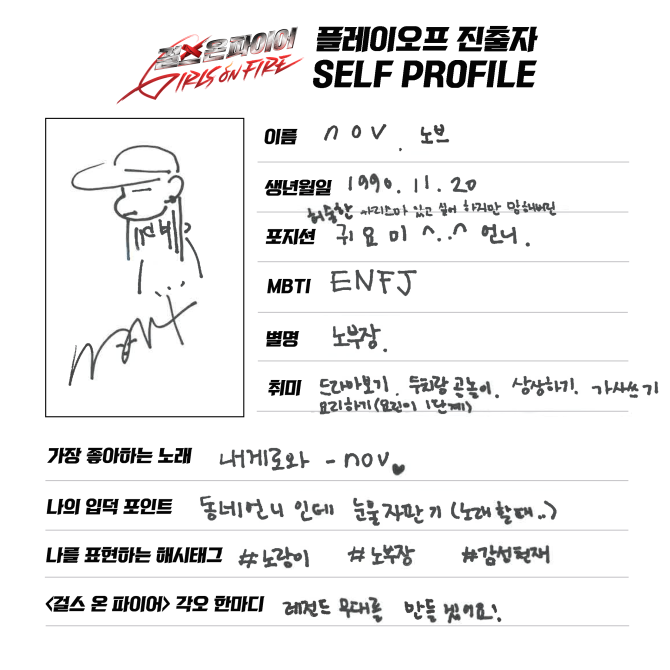 걸스 온 파이어
GIRLS ON FIRE
플레이오프 진출자
SELF PROFILE
이름 nov. 노브
생년월일 1990. 11. 20
허술한 카리스마 있고 싶어 하지만 망해버린
포지션 귀요미 ^..^ 언니.
MBTI ENFJ
별명 노부장.
취미 드라마보기. 두치랑 공놀이. 상상하기. 가사쓰기
요리하기(요린이 1단계)
가장 좋아하는 노래 내게로와 - nov
나의 입덕 포인트 동네언니 인데 눈물자판기 (노래할때..)
나를 표현하는 해시태그 #노랑이 #노부장 #감성천재
<걸스 온 파이어> 각오 한마디 레전드 무대를 만들겠어요!